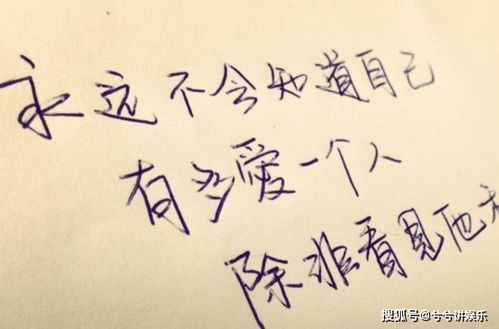 永远不会知道自己
有多愛一个人
除非看見他
搜狐号@兮兮讲娱乐